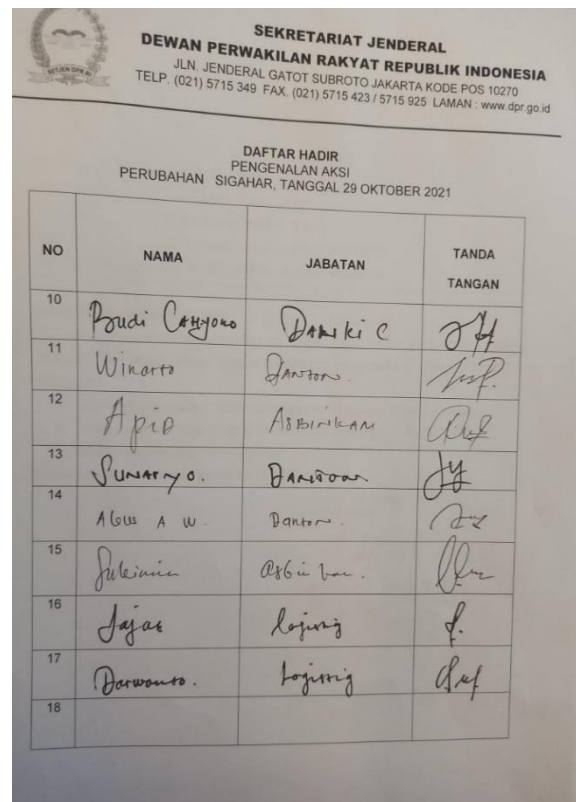 SETJEN DPR RI
SEKRETARIAT JENDERAL
DEWAN PERWAKILAN RAKYAT REPUBLIK INDONESIA
JLN. JENDERAL GATOT SUBROTO JAKARTA KODE POS 10270
TELP. (021) 5715 349 FAX. (021) 5715 423 / 5715 925 LAMAN : www.dpr.go.id
DAFTAR HADIR
PENGENALAN AKSI
PERUBAHAN SIGAHAR, TANGGAL 29 OKTOBER 2021
NO NAMA JABATAN TANDA TANGAN
10 Budi Cahyono Danki C
11 Winarto Danton.
12 Apip ASBINKAM
13 Sunaryo. Danton
14 Agus A W. Danton.
15
16 Jajat logistig
17 Darwanto. Logistig
18